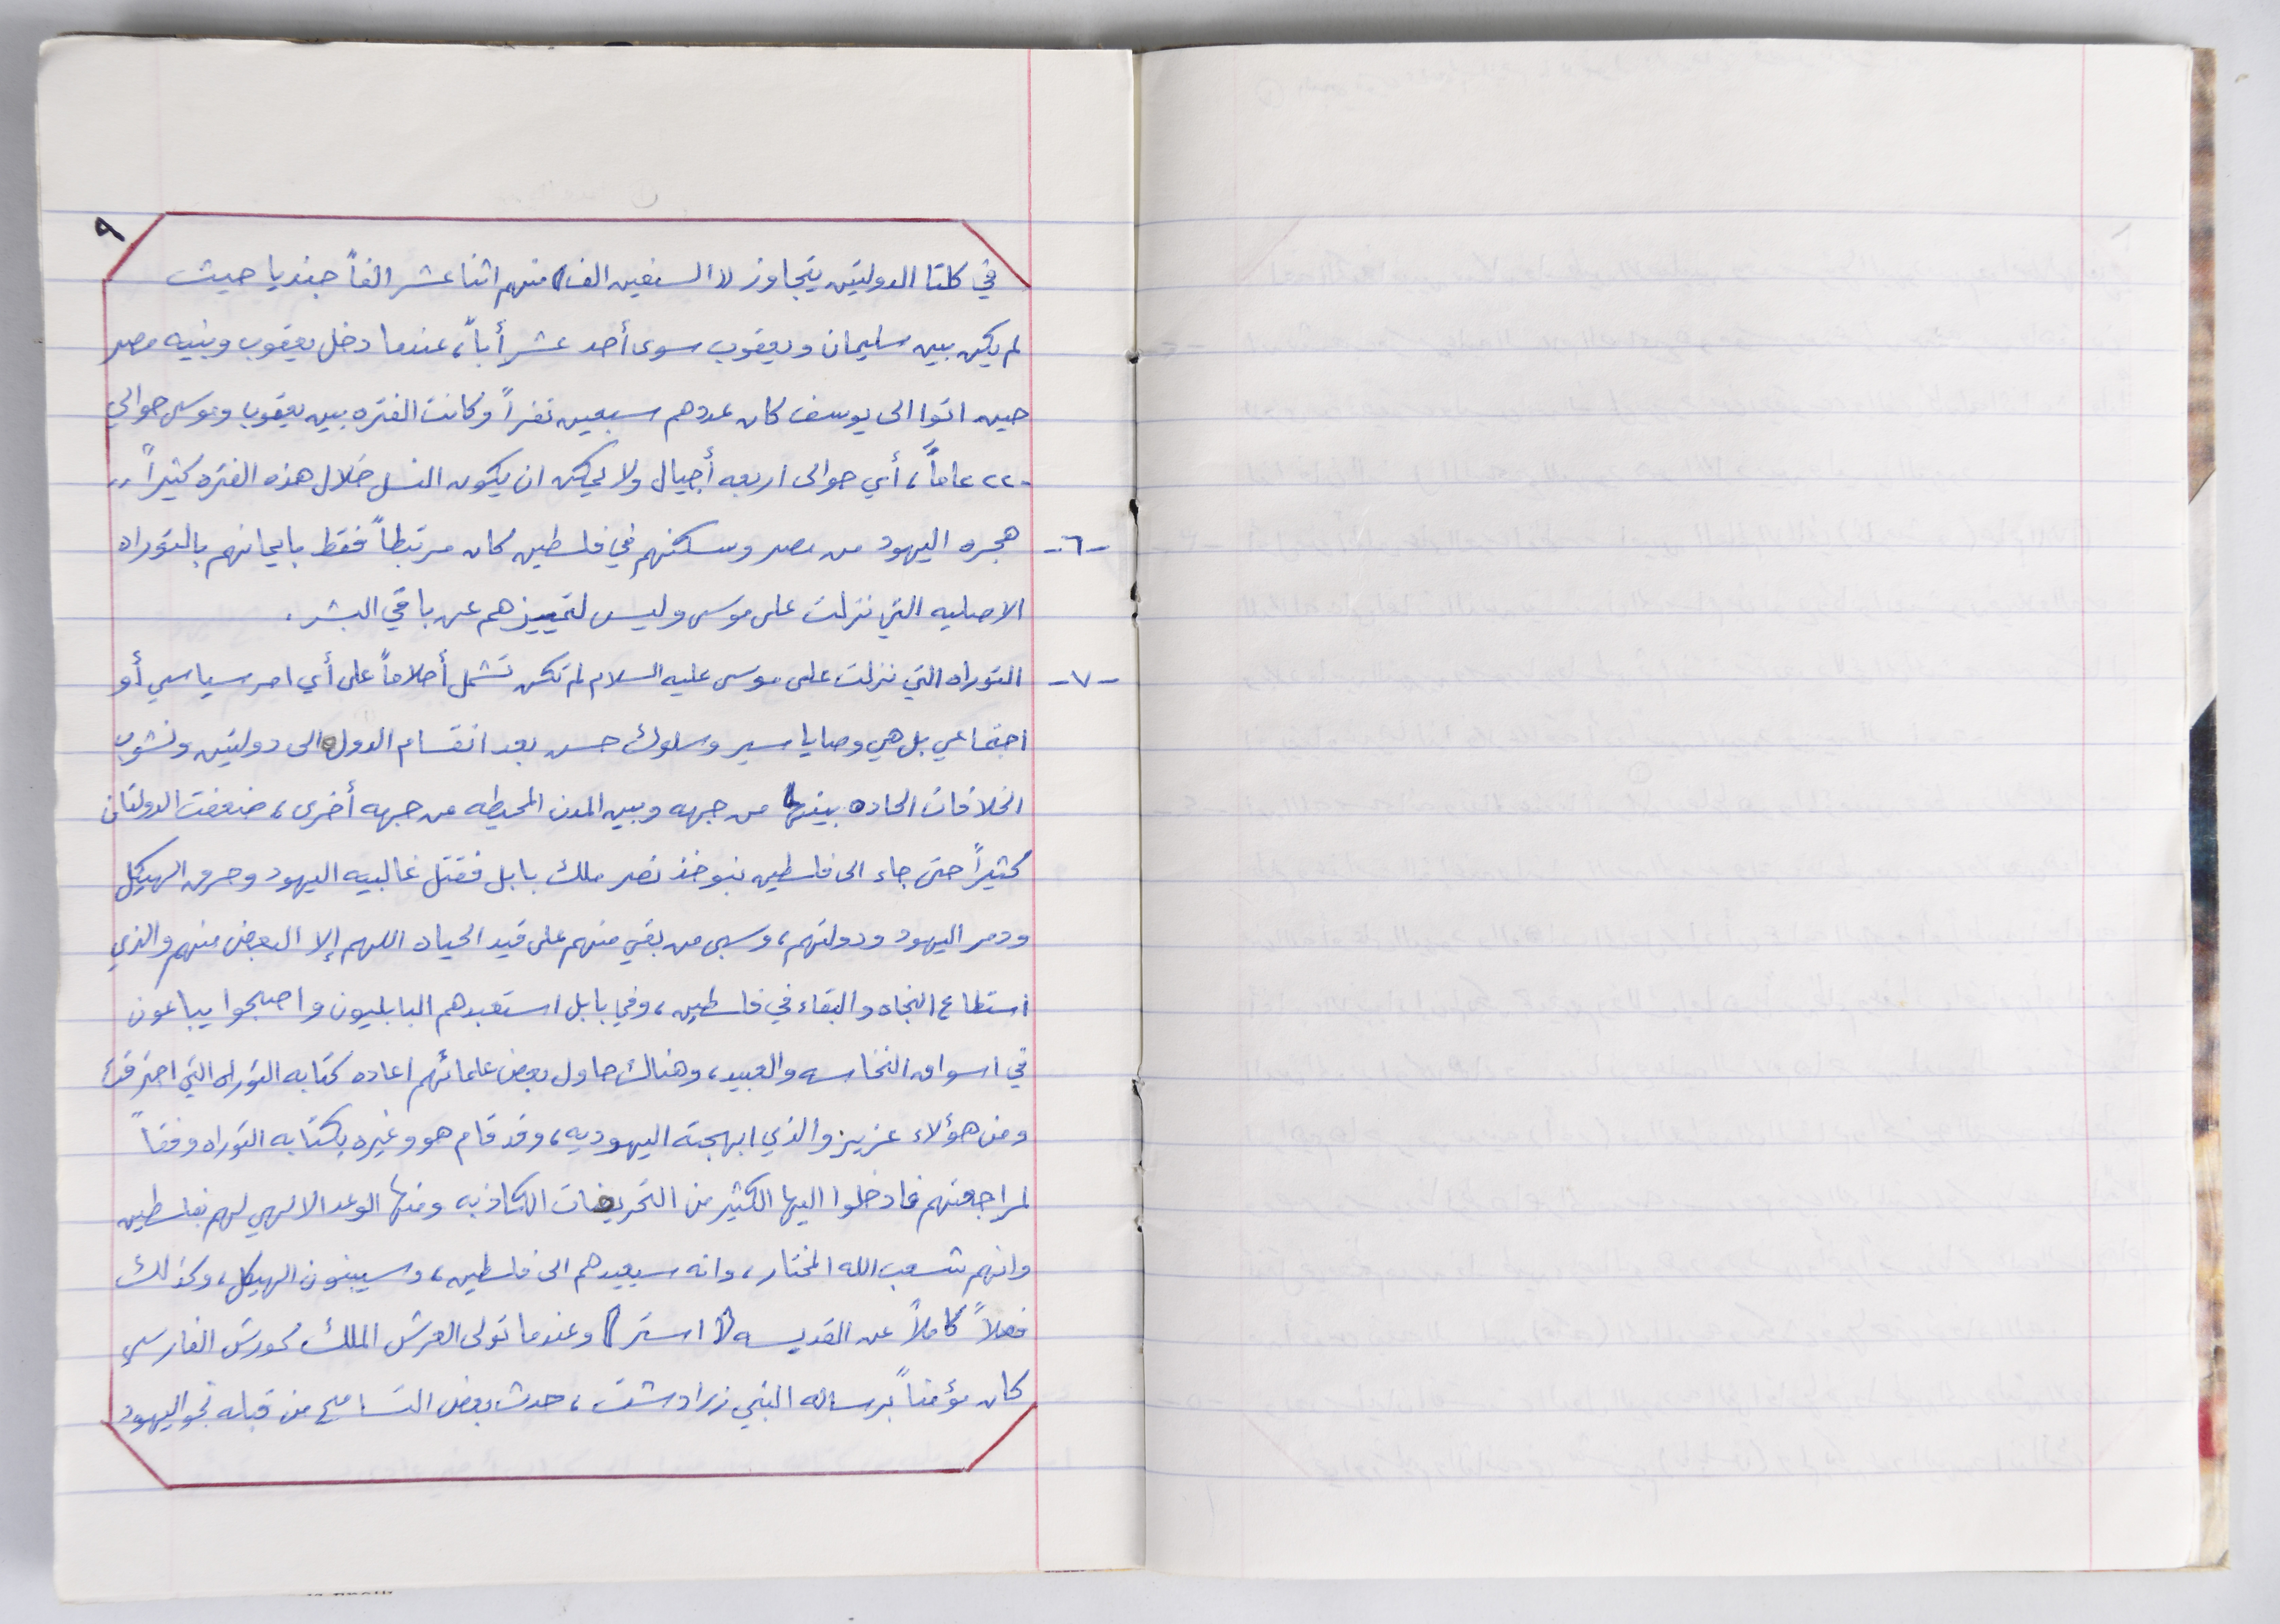 ٩
في كلتا الدولتين يتجاوز «السبعين الف» منهم اثنا عشر الفاً جنديا حيث
لم يكن بين سليمان ويعقوب سوى أحد عشر أباً، عندما دخل يعقوب وبنيه مصر
حين اتوا الى يوسف كان عددهم سبعين نفراً وكانت الفتره بين يعقوب وموسى حوالي
٢٢٠ عاماً، أي حوالى اربعه أجيال ولا يمكن ان يكون النسل خلال هذه الفتره كثيراً..
-٦- هجره اليهود من مصر وسكنهم في فلسطين كان مرتبطاً فقط بايمانهم بالتوراه
الاصليه التي نزلت على موسى وليس لتمييزهم عن باقي البشر.
-٧- التوراه التي نزلت على موسى عليه السلام لم تكن تشمل أحلاماً على أي امر سياسي أو
اجتماعي بل هي وصايا سير وسلوك حسن بعد انقسام الدوله الى دولتين ونشوب
الخلافات الحاده بينها من جهه وبين المدن المحيطه من جهه أخرى، ضعفت الدولتان
كثيراً حتى جاء الى فلسطين نبوخذ نصر ملك بابل فقتل غالبيه اليهود وحرق الهيكل
ودمر اليهود ودولتهم، وسبى من بقي منهم على قيد الحياه اللهم إلا البعض منهم والذي
استطاع النجاه والبقاء في فلسطين، وفي بابل استعبدهم البابليون واصبحوا يباعون
في اسواق النخاسه والعبيد، وهناك حاول بعض علمائهم اعاده كتابه التوراه التي احترقت
ومن هؤلاء عزيز والذي ابهجته اليهوديه، وقد قام هو وغيره بكتابه التوراه وفقاً
لمراجعتهم فادخلوا اليها الكثير من التحريفات الكاذبه ومنها الوعد الالهي لهم بفلسطين
وانهم شعب الله المختار، وانه سيعيدهم الى فلسطين، وسيبنون الهيكل، وكذلك
فصلاً كاملاً عن القديسه «استر» وعندما تولى العرش الملك كورش الفارسي
كان مؤمناً برساله النبي زرادشت، حدث بعض التسامح من قبله نحو اليهود